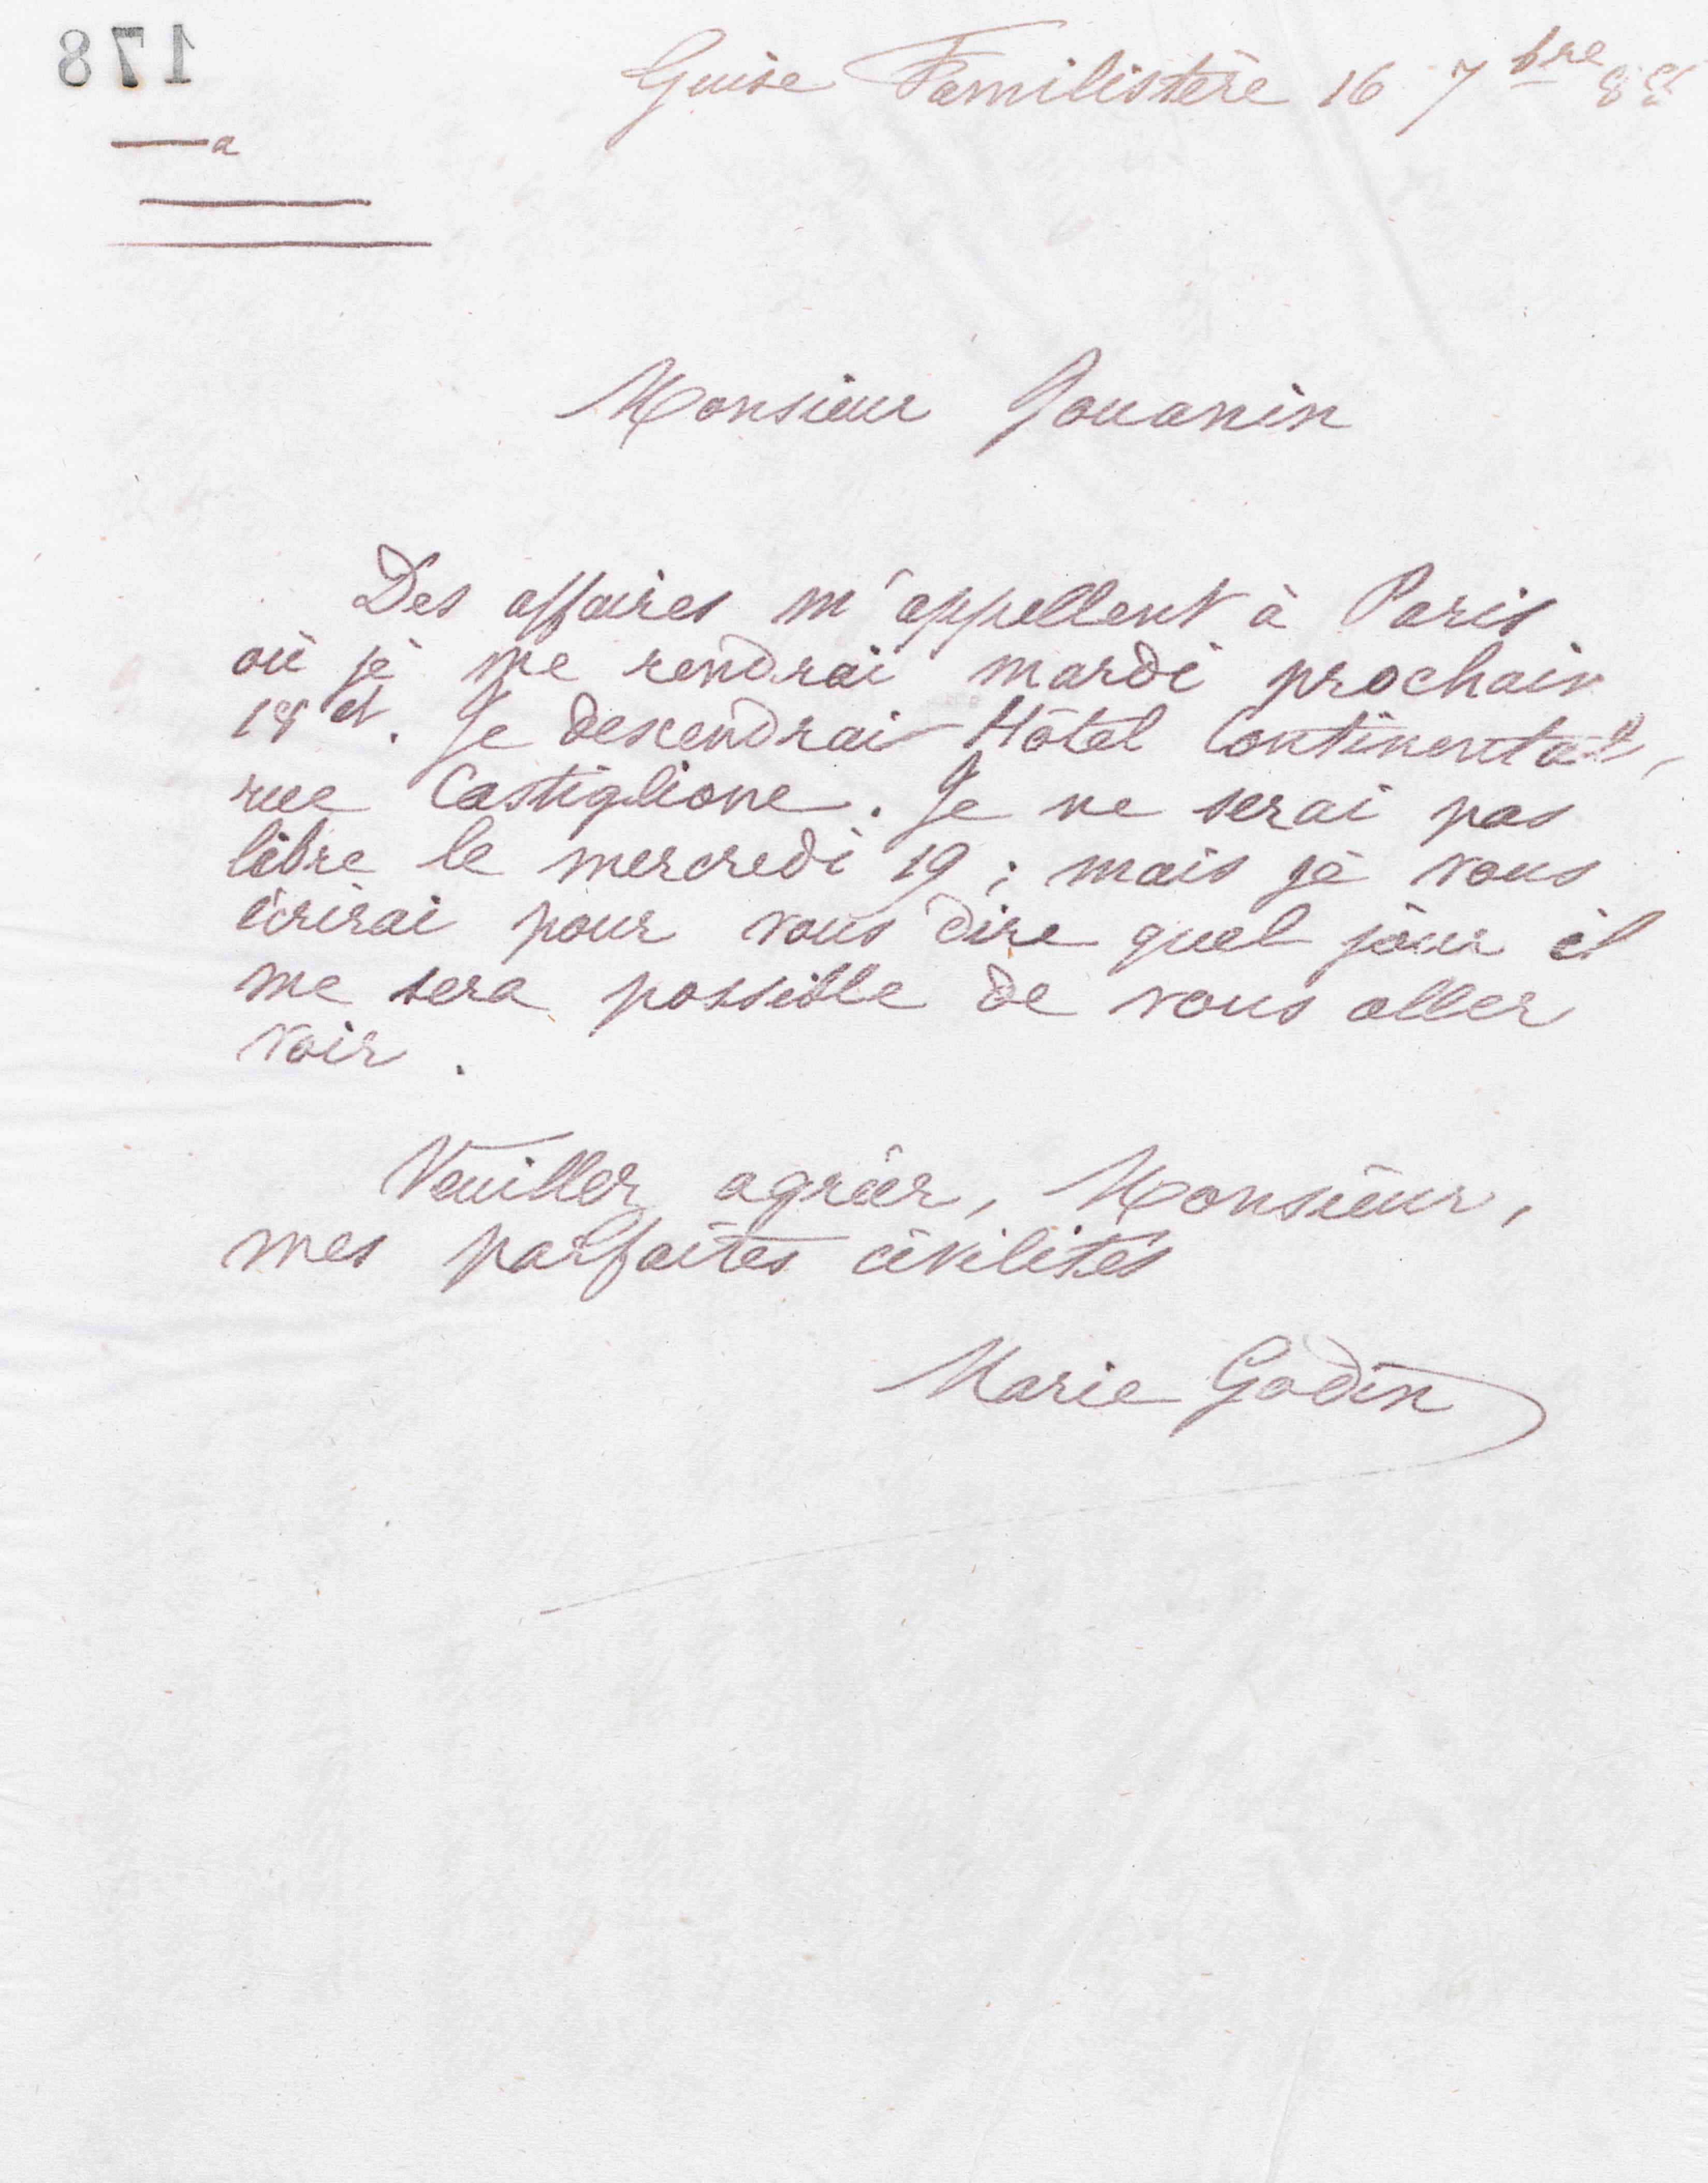 178
a
Guise Familistère 16 7bre 88
Monsieur Jouanin
Des affaires m'appellent à Paris
où je me rendrai mardi prochain
18 ct. Je descendrai Hôtel Continental,
rue Castiglione. Je ne serai pas
libre le mercredi 19 ; mais je vous
écrirai pour vous dire quel jour il
me sera possible de vous aller
voir.
Veuillez agréer, Monsieur,
mes parfaites civilités
Marie Godin